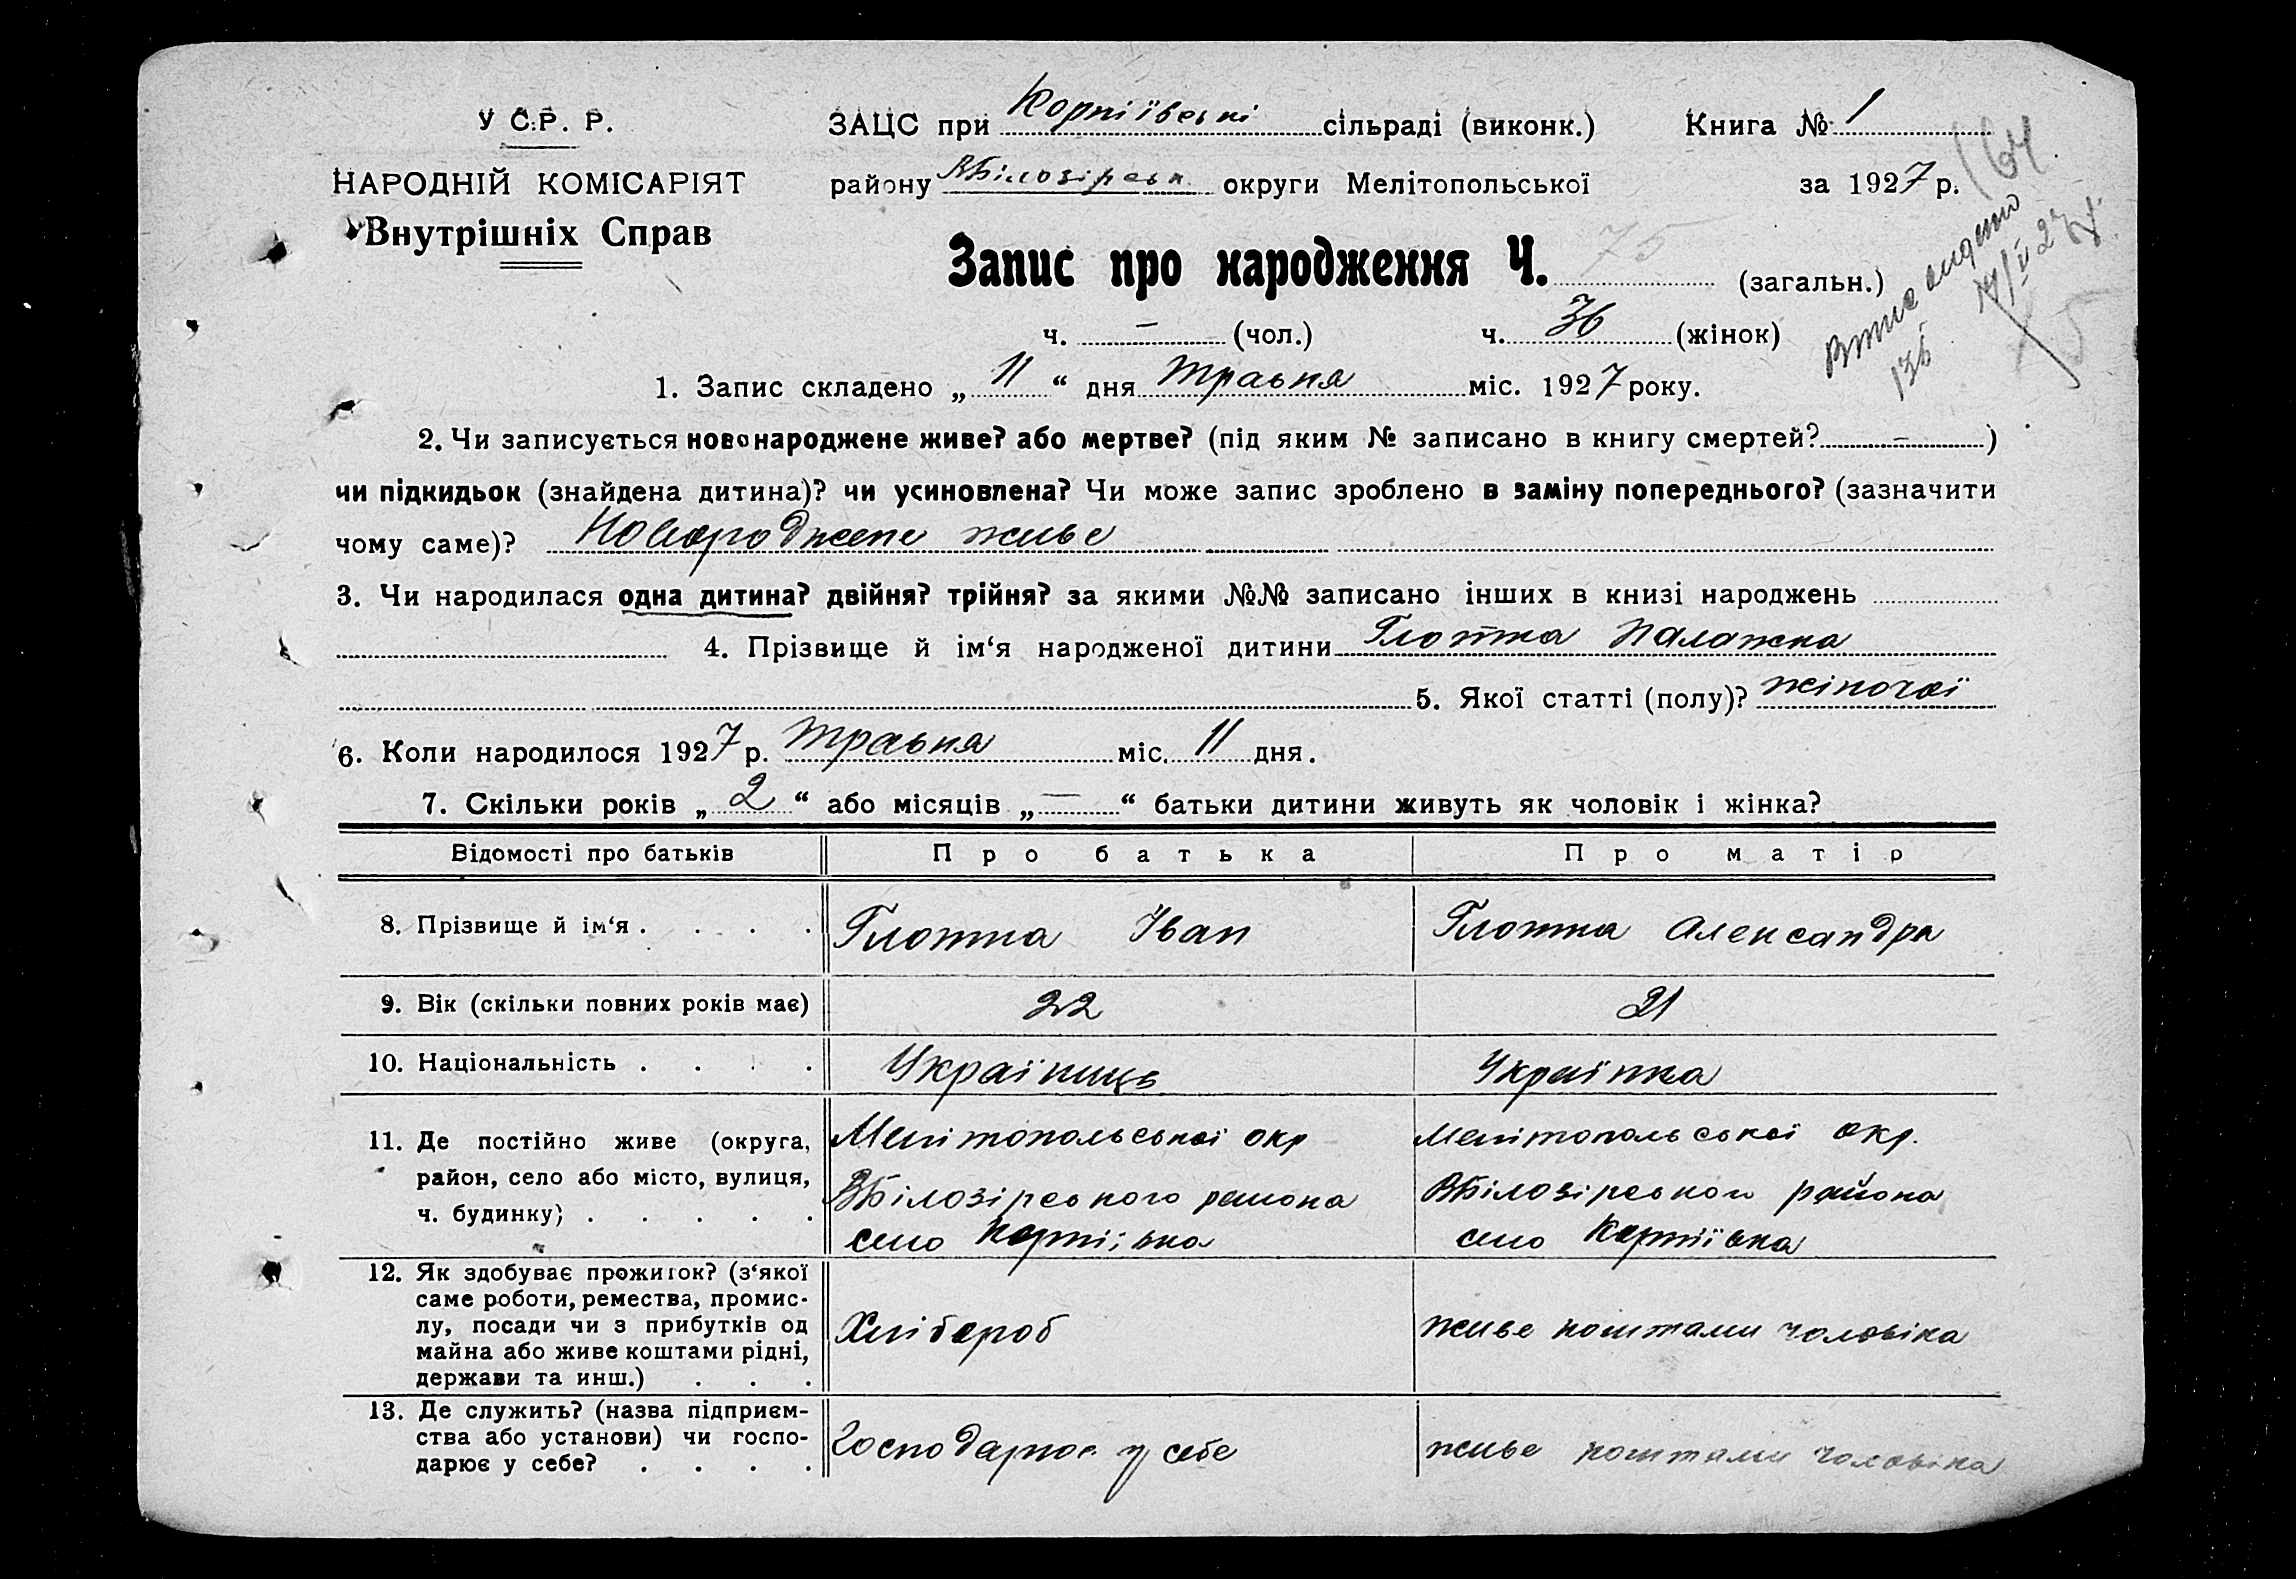 У С.Р. Р.
НАРОДНІЙ КОМІСАРІЯТ
Внутрішніх Справ
ЗАЦС при Корніївські сільраді (виконк.)
Книга № 1
району ВБілозірськ. округи Мелітопольської
за 1927 р.
164
Запис про народження Ч. 75 (загальн.)
ч. — (чол.) ч. 36 (жінок)
Витяг видано
136
1. Запис складено „ 11 “ дня травня міс. 1927 року.
2. Чи записується новонароджене живе? або мертве? (під яким № записано в книгу смертей? – )
чи підкидьок (знайдена дитина)? чи усиновлена? Чи може запис зроблено в заміну попереднього? (зазначити
чому саме)? Новороджене живе
3. Чи народилася одна дитина? двійня? трійня? за якими №№ записано інших в книзі народжень
4. Прізвище й ім‘я народженої дитини Глотка Палажка
5. Якої статті (полу)? жіночої
6. Коли народилося 1927 р. травня міс. 11 дня.
7. Скільки років „ 2 “ або місяців „ — “ батьки дитини живуть як чоловік і жінка?
Відомості про батьків Про батька Про матір
8. Прізвище й ім‘я . . . . Глотка Іван Глотка Александра
9. Вік (скільки повних років має) 22 21
10. Національність . . . . Українць Українка
11. Де постійно живе (округа, Мелітопольської окр Мелітопольської окр.
район, село або місто, вулиця, ВБілозірського района ВБілозірського района
ч. будинку) . . . . . село Корніївка село Корніївка
12. Як здобуває прожиток? (з‘якої
саме роботи, ремества, промис-
лу, посади чи з прибутків од Хлібороб живе коштами чоловіка
майна або живе коштами рідні,
держави та инш.) . . .
13. Де служить? (назва підприєм-
ства або установи) чи госпо- Господарює у себе живе коштами чоловіка
дарює у себе? . . . .